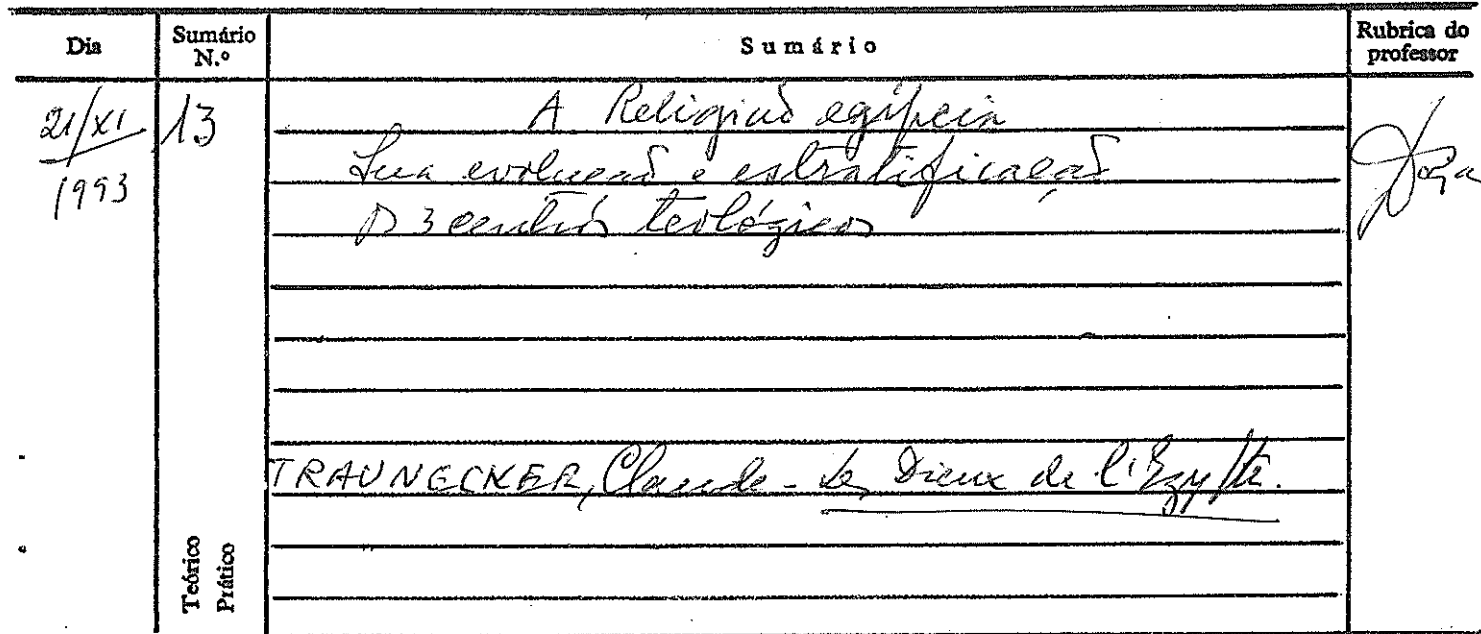 Dia
Sumário N.º
Sumário
Rubrica do professor
21/XI/1993
13
A Religião egípcia
Sua evolução e estratificação
Os 3 centros teológicos
TRAUNECKER, Claude - Les Dieux de l'Egypte.
Teórico
Prático